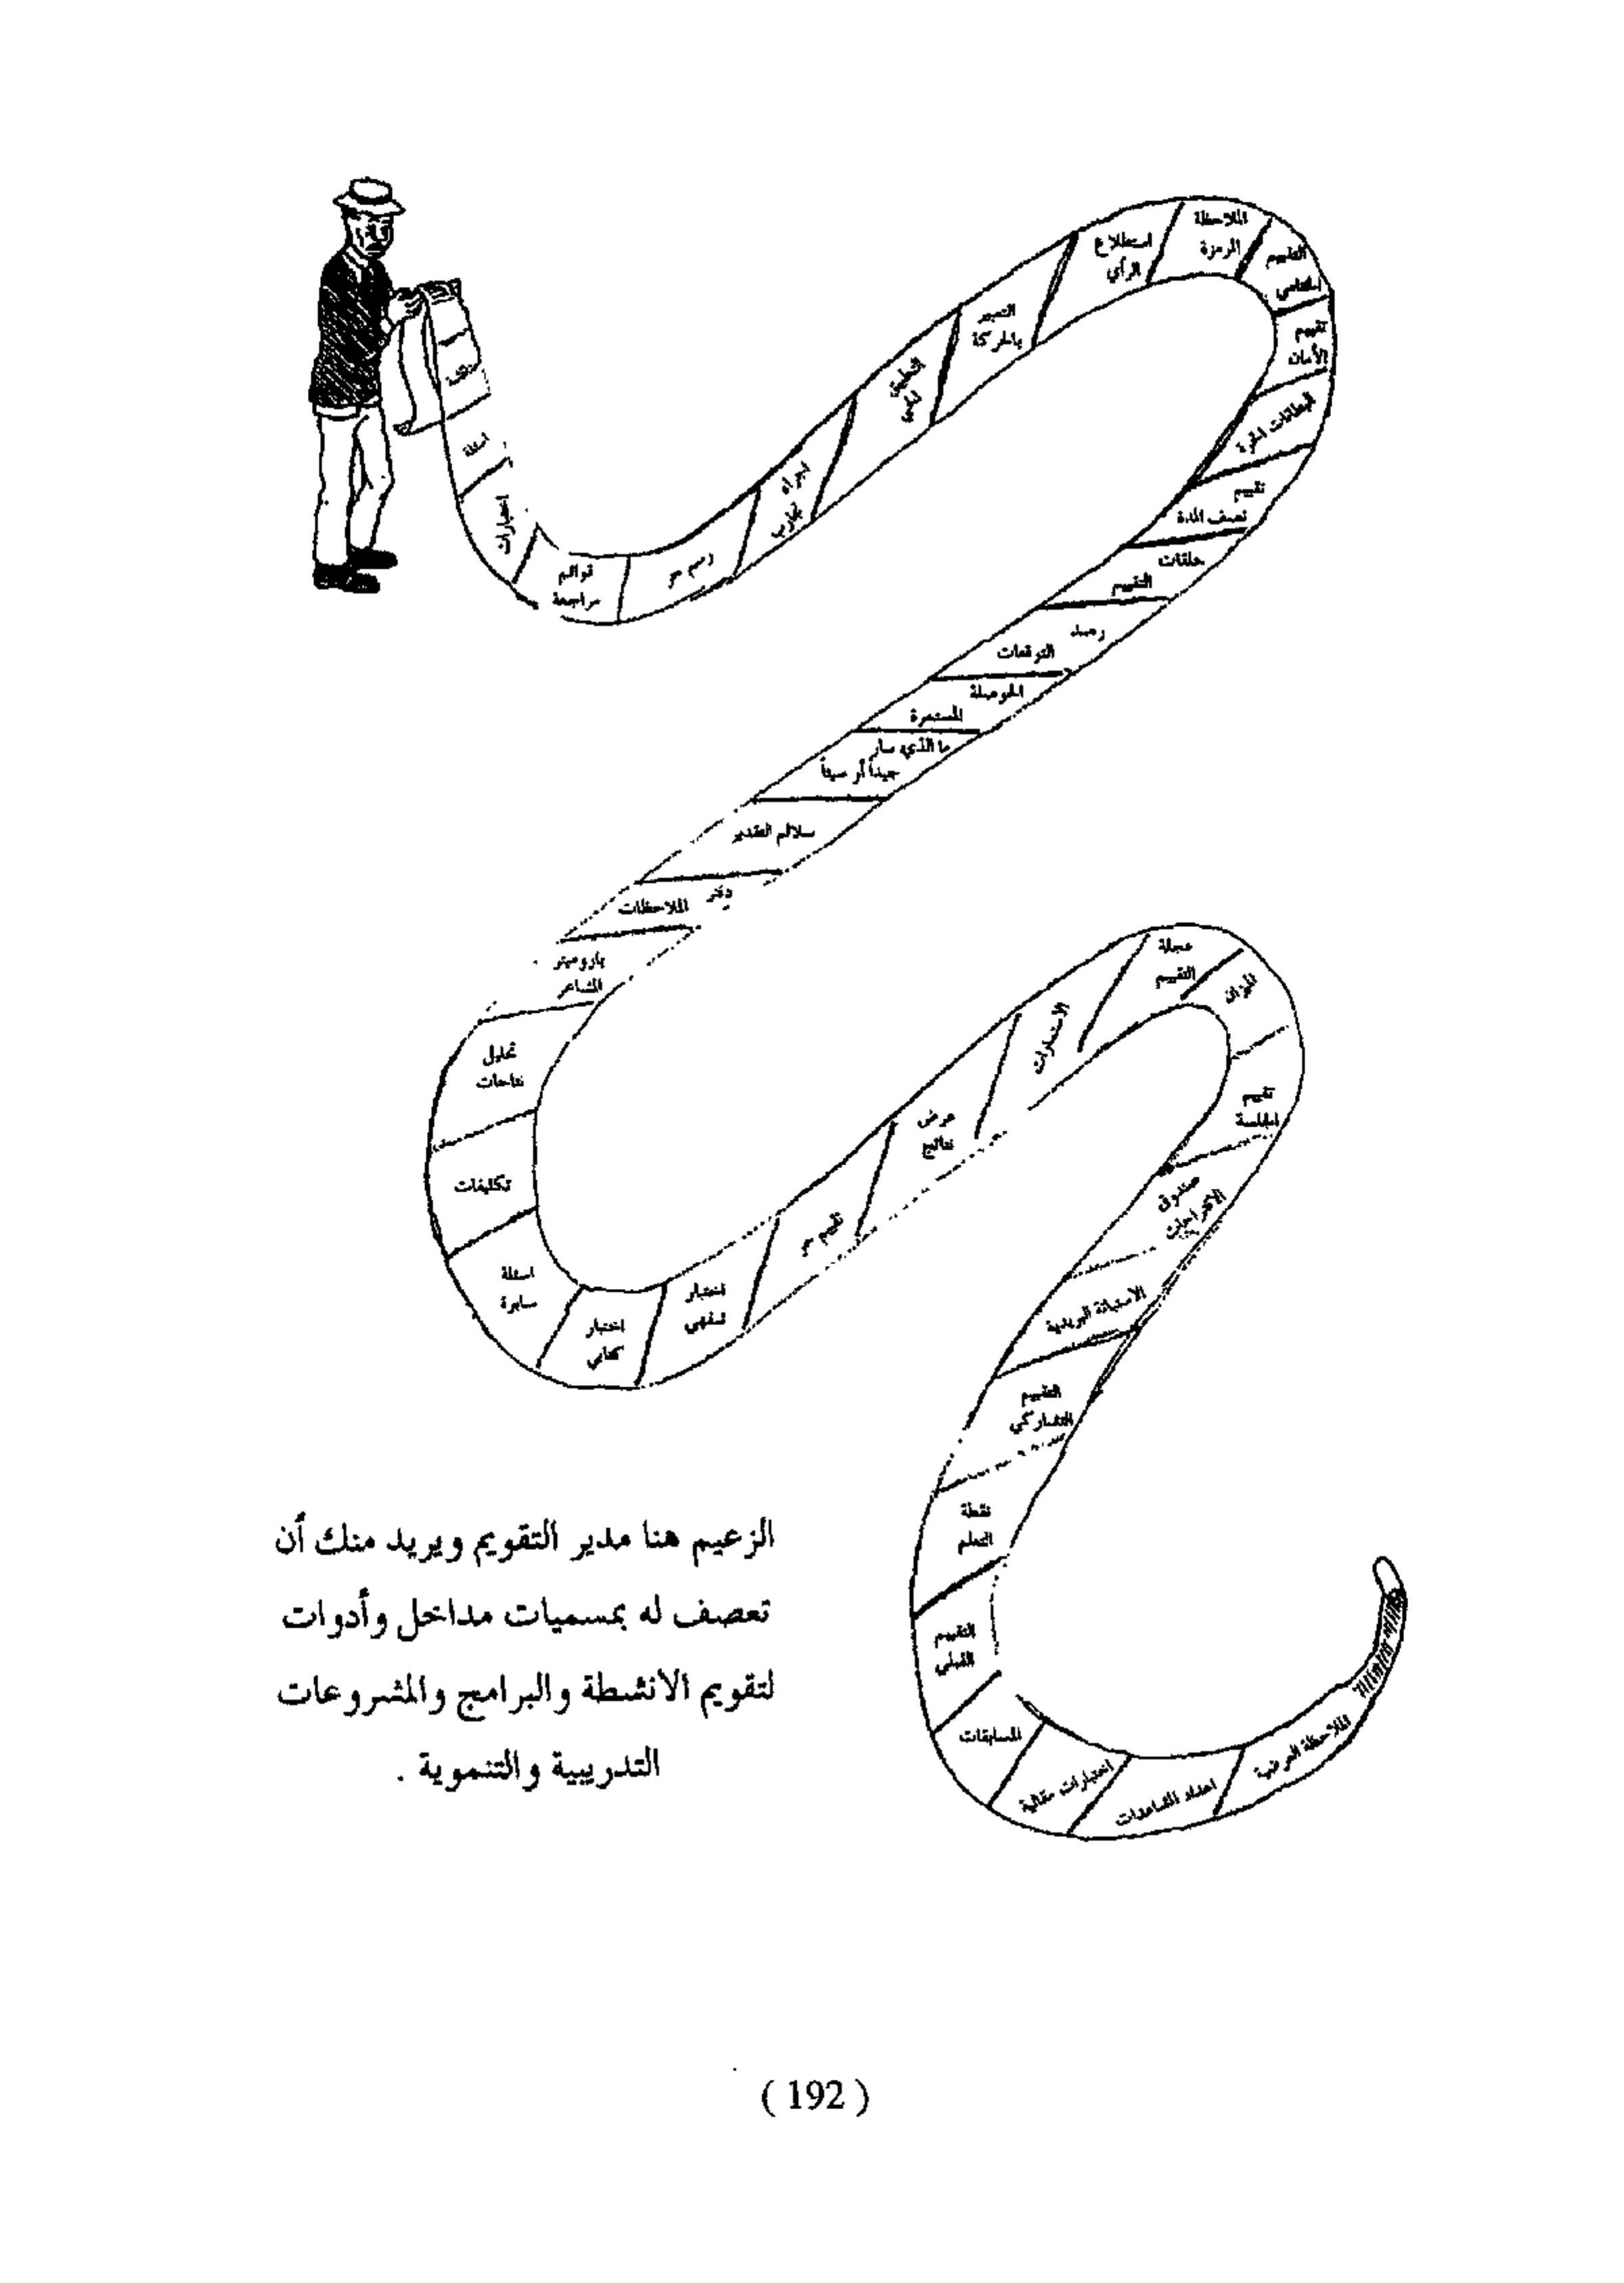 أسئلة
اختبارات
قوائم
مراجعة
رسم حر
اجراء
تجارب
التعبير
بالحركة
استطلاع
الرأي
الملاحظة
المرمزة
التقييم
تقييم
الأمان
البطاقات الحرة
تقييم
نصف المدة
حلقات
التقييم
رصد
التوقعات
الحوصلة
المستمرة
ما الذي سار
جيداً أو سيئاً
سلالم التقدير
دفتر
الملاحظات
باروميتر
المشاعر
تحليل
نتاجات
تكليفات
اسئلة
سابرة
اختبار
كتابي
اختبار
شفهي
تقييم حر
عرض
نتائج
الاستمارات
عجلة
التقييم
الميزان
تقييم
الجلسة
صندوق
الاقتراحات
الاستبانة البريدية
التقييم
التشاركي
نقطة
التعلم
التقييم
القبلي
المسابقات
اختبارات مقالية
اعداد المشاهدات
الملاحظة العرضية
الزعيم هنا مدير التقويم ويريد منك أن
تعصف له بمسميات مداخل وأدوات
لتقويم الانشطة والبرامج والمشروعات
التدريبية والتنموية .
( 192 )